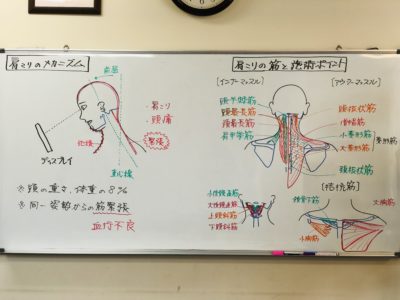 肩こりのメカニズム
・肩こり
・頭痛
緊張
ディスプレイ
重心線
※頭の重さ、体重の8%
※同一姿勢からの筋緊張
血行不良
肩こりの筋と施術ポイント
[インナーマッスル]
[アウターマッスル]
頭半棘筋
頭最長筋
肩甲挙筋
頭板状筋
僧帽筋
小菱形筋
大菱形筋
菱形筋
頭板状筋
[拮抗筋]
小後頭直筋
大後頭直筋
上頭斜筋
下頭斜筋
鎖骨下筋
大胸筋
小胸筋